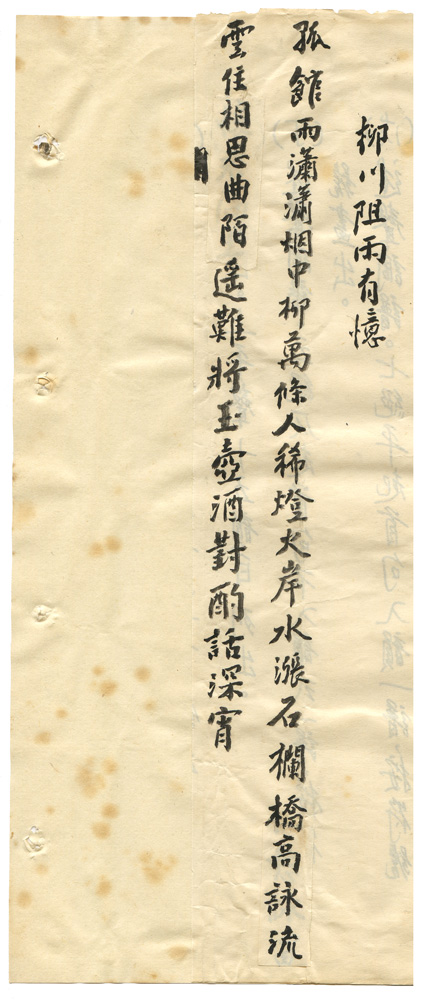 柳川阻雨有憶
孤館雨瀟瀟烟中柳萬條人稀燈火岸水漲石欄橋高詠流
雲住相思曲陌遥難將玉壺酒對酌話深宵